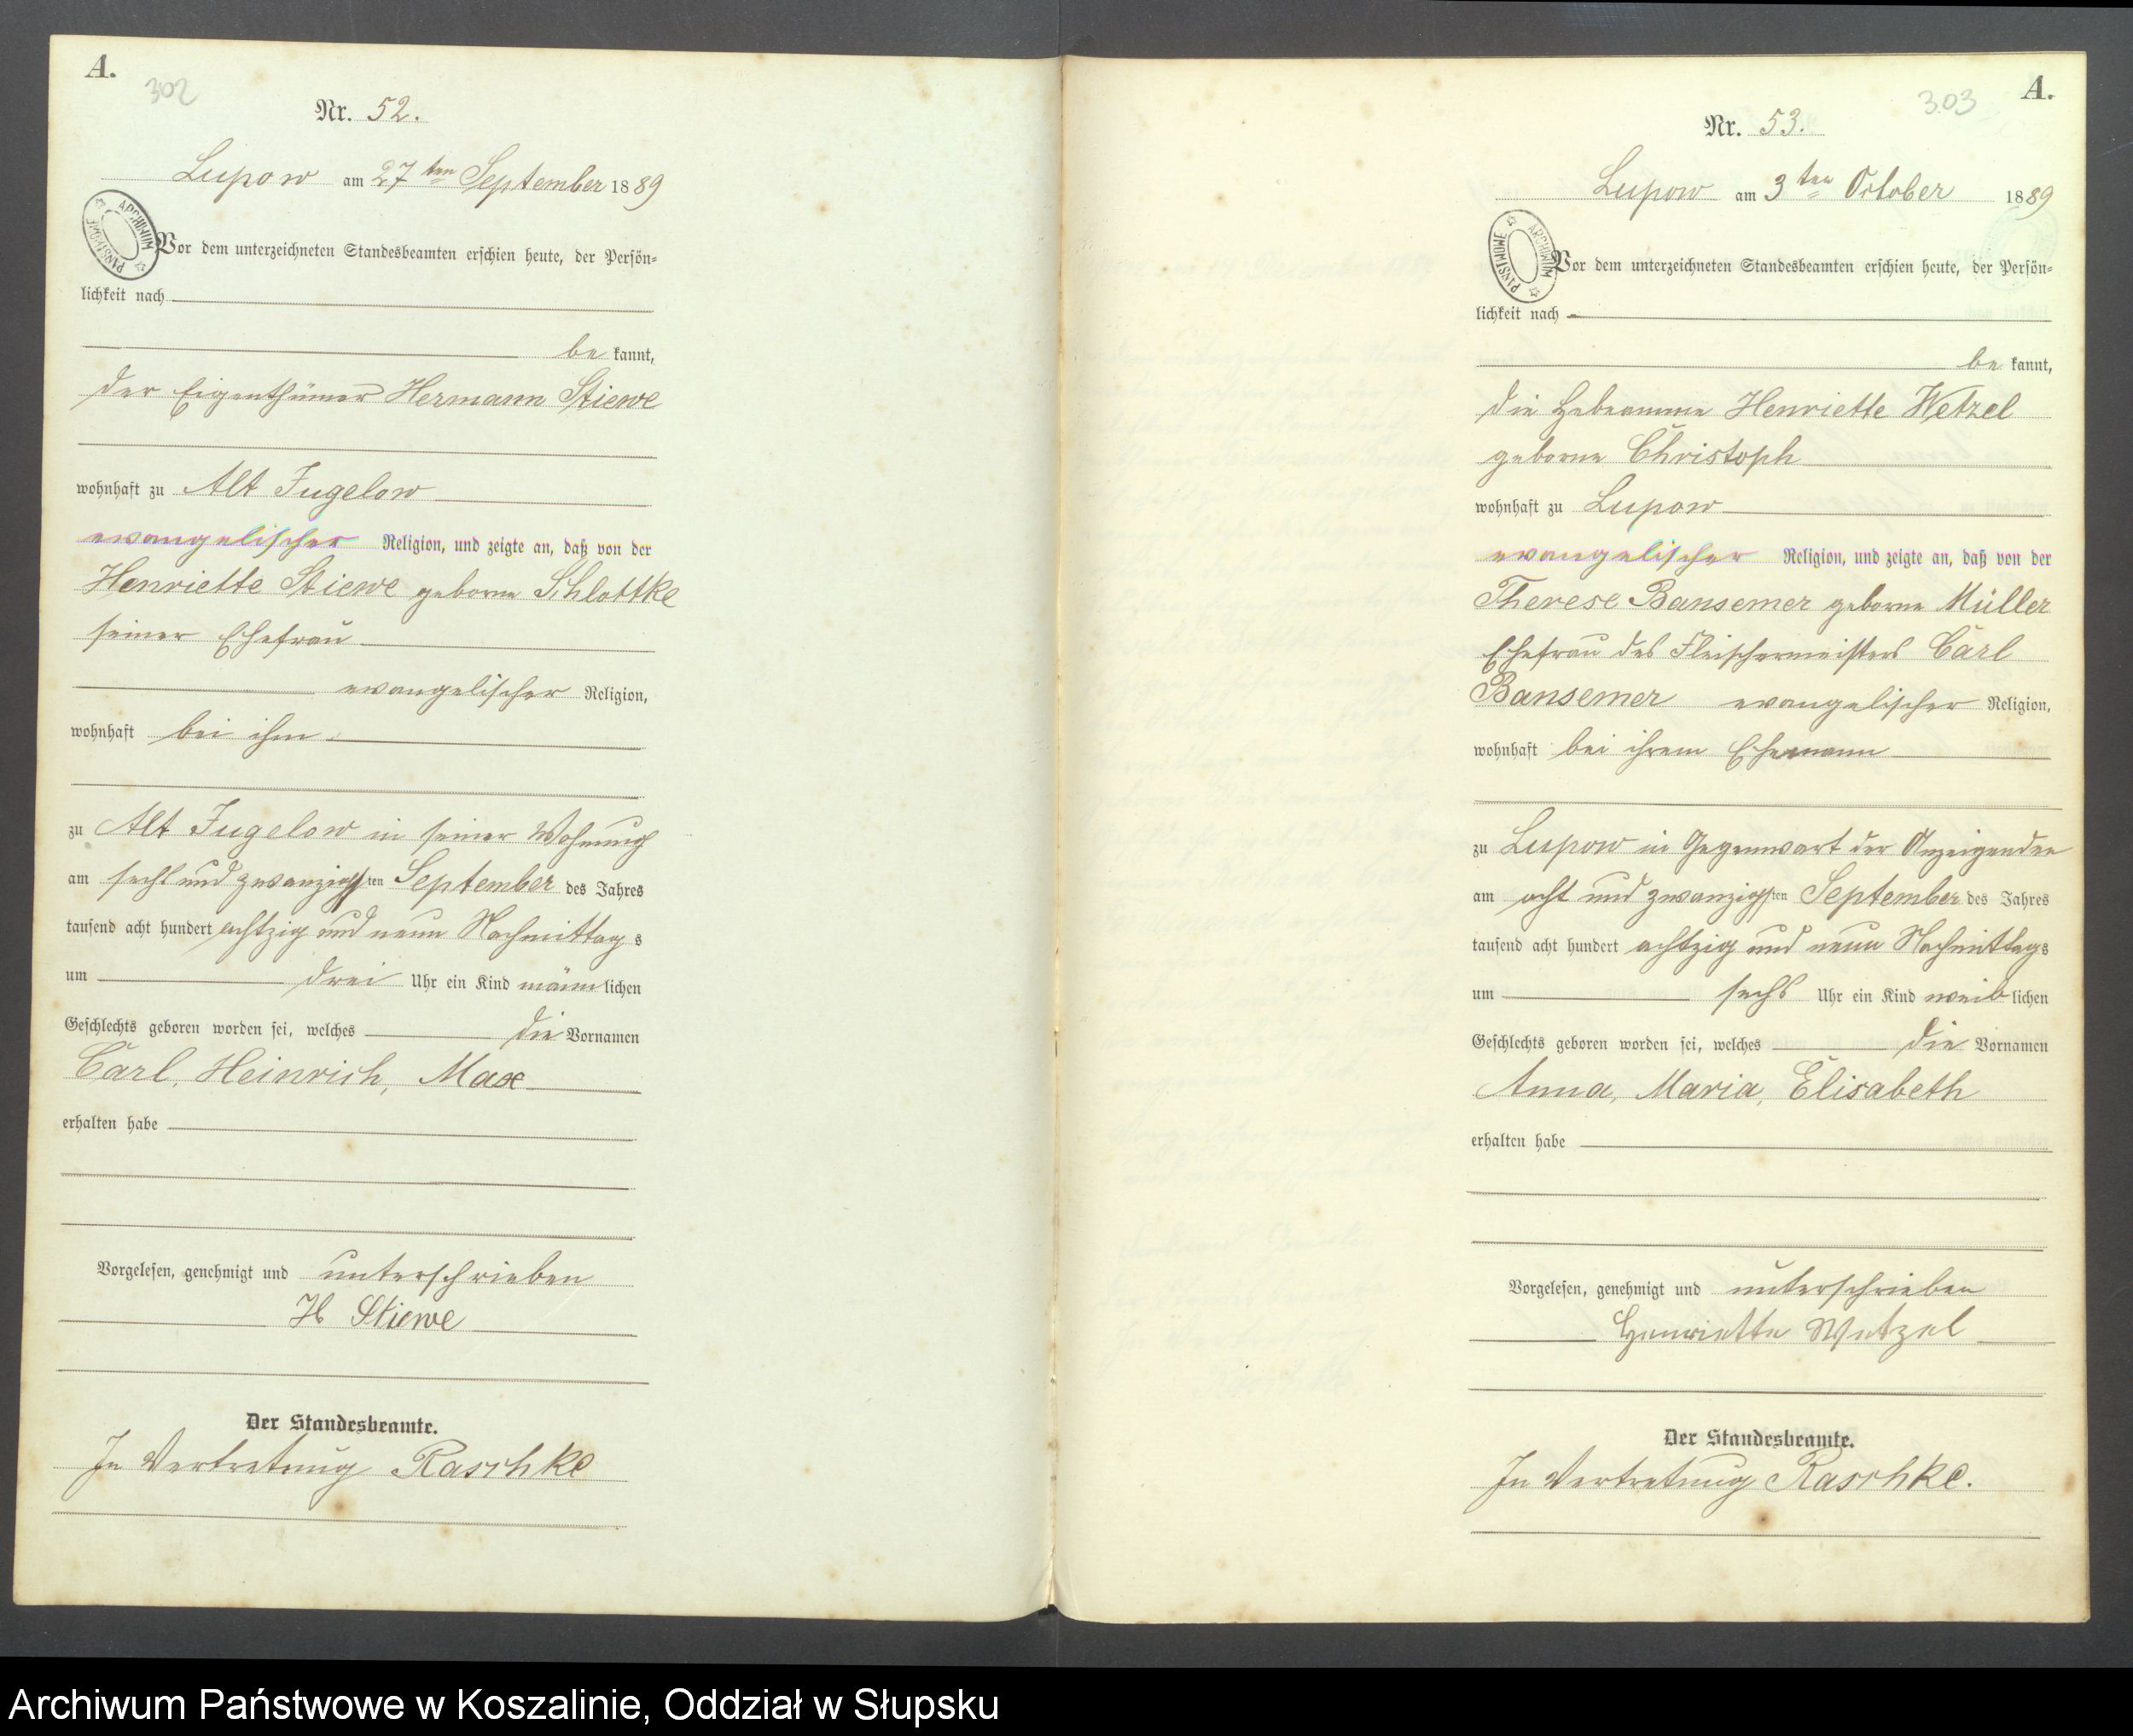 A.
302
Nr. 52.
Lupow am 27ten September 1889
ARCHIWUM PAŃSTWOWE
Vor dem unterzeichneten Standesbeamten erschien heute, der Persön-
lichkeit nach
be kannt,
der Eigenthümer Hermann Stiewe
wohnhaft zu Alt Jugelow
evangelischer Religion, und zeigte an, daß von der
Henriette Stiewe geborne Schlottke
seiner Ehefrau
evangelischer Religion,
wohnhaft bei ihm
zu Alt Jugelow in seiner Wohnung
am sechs und zwanzigsten September des Jahres
tausend acht hundert achtzig und neun Nachmittags
um drei Uhr ein Kind männlichen
Geschlechts geboren worden sei, welches die Vornamen
Carl, Heinrich, Max
erhalten habe
Vorgelesen, genehmigt und unterschrieben
H Stiewe
Der Standesbeamte.
In Vertretung Raschke
A.
303
Nr. 53.
Lupow am 3ten October 1889
ARCHIWUM PAŃSTWOWE
Vor dem unterzeichneten Standesbeamten erschien heute, der Persön-
lichkeit nach
be kannt,
die Hebeamme Henriette Wetzel
geborne Christoph
wohnhaft zu Lupow
evangelischer Religion, und zeigte an, daß von der
Therese Bansemer geborne Müller
Ehefrau des Fleischermeisters Carl
Bansemer evangelischer Religion,
wohnhaft bei ihrem Ehemann
zu Lupow in Gegenwart der Anzeigenden
am acht und zwanzigsten September des Jahres
tausend acht hundert achtzig und neun Nachmittags
um sechs Uhr ein Kind weiblichen
Geschlechts geboren worden sei, welches die Vornamen
Anna, Maria, Elisabeth
erhalten habe
Vorgelesen, genehmigt und unterschrieben
Henriette Wetzel
Der Standesbeamte.
In Vertretung Raschke.
Archiwum Państwowe w Koszalinie, Oddział w Słupsku